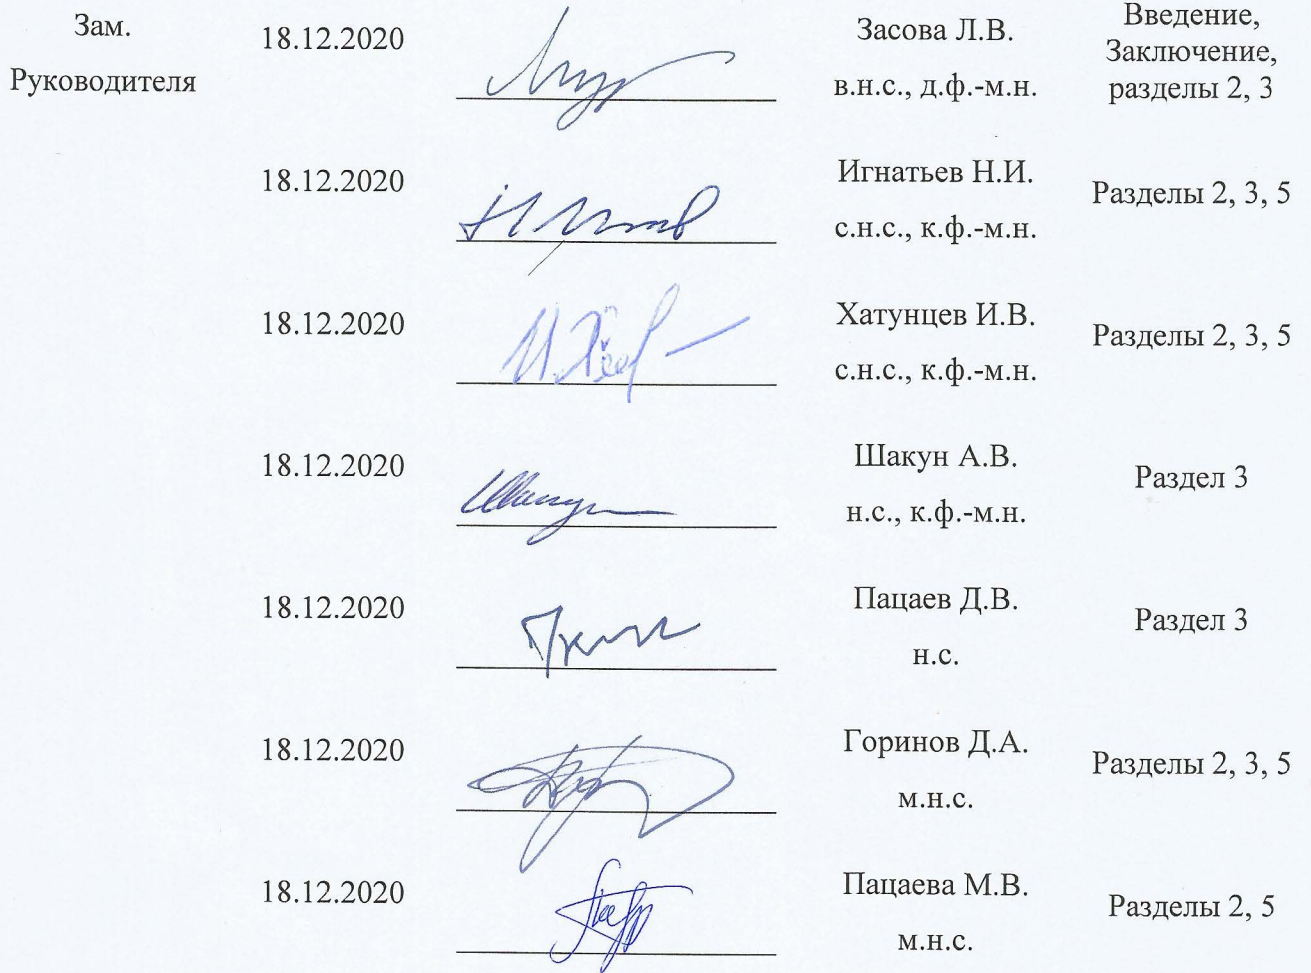 Зам.
Руководителя
18.12.2020
Засова Л.В.
в.н.с., д.ф.-м.н.
Введение,
Заключение,
разделы 2, 3
18.12.2020
Игнатьев Н.И.
с.н.с., к.ф.-м.н.
Разделы 2, 3, 5
18.12.2020
Хатунцев И.В.
с.н.с., к.ф.-м.н.
Разделы 2, 3, 5
18.12.2020
Шакун А.В.
н.с., к.ф.-м.н.
Раздел 3
18.12.2020
Пацаев Д.В.
н.с.
Раздел 3
18.12.2020
Горинов Д.А.
м.н.с.
Разделы 2, 3, 5
18.12.2020
Пацаева М.В.
м.н.с.
Разделы 2, 5